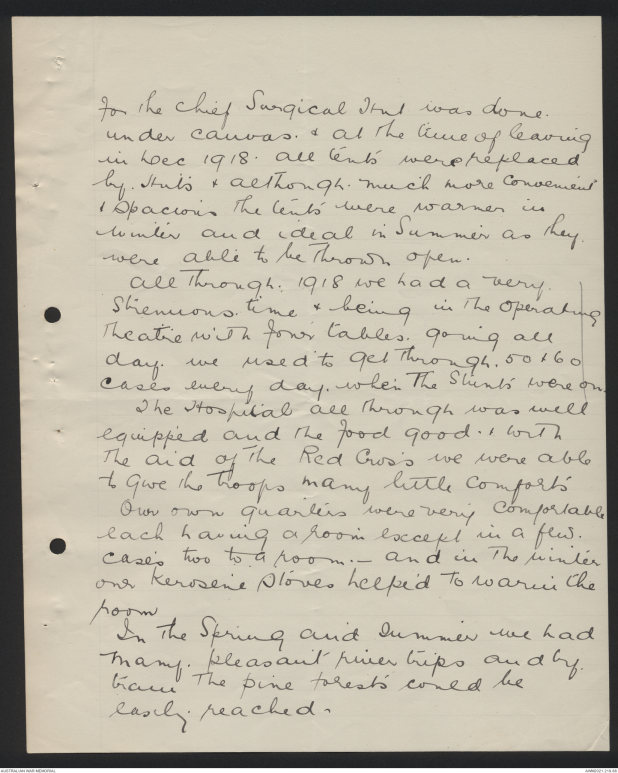 for the chief Surgical Hut was done.
under canvas. & at the time of leaving
in Dec 1918. all tents were replaced
by. Huts & although. much more convenient
& spacious the tents were warmer in
winter and ideal in Summer as they.
were able to be thrown open.
all through. 1918 we had a very.
Strenuous. time & being in the operating
theatre with four tables. going all
day. we used to get through. 50 & 60
cases every day. when the Stunts were on.
The Hospital all through was well
equipped and the food good. & with
the aid of the Red Cross we were able
to give the troops many little comforts
Our own quarters were very comfortable
each having a room except in a few.
cases two to a room. – and in the winter
our Kerosene stoves helped to warm the
room
In the Spring and Summer we had
many. pleasant river trips and by.
tram the pine forests could be
easily reached.
AUSTRALIAN WAR MEMORIAL